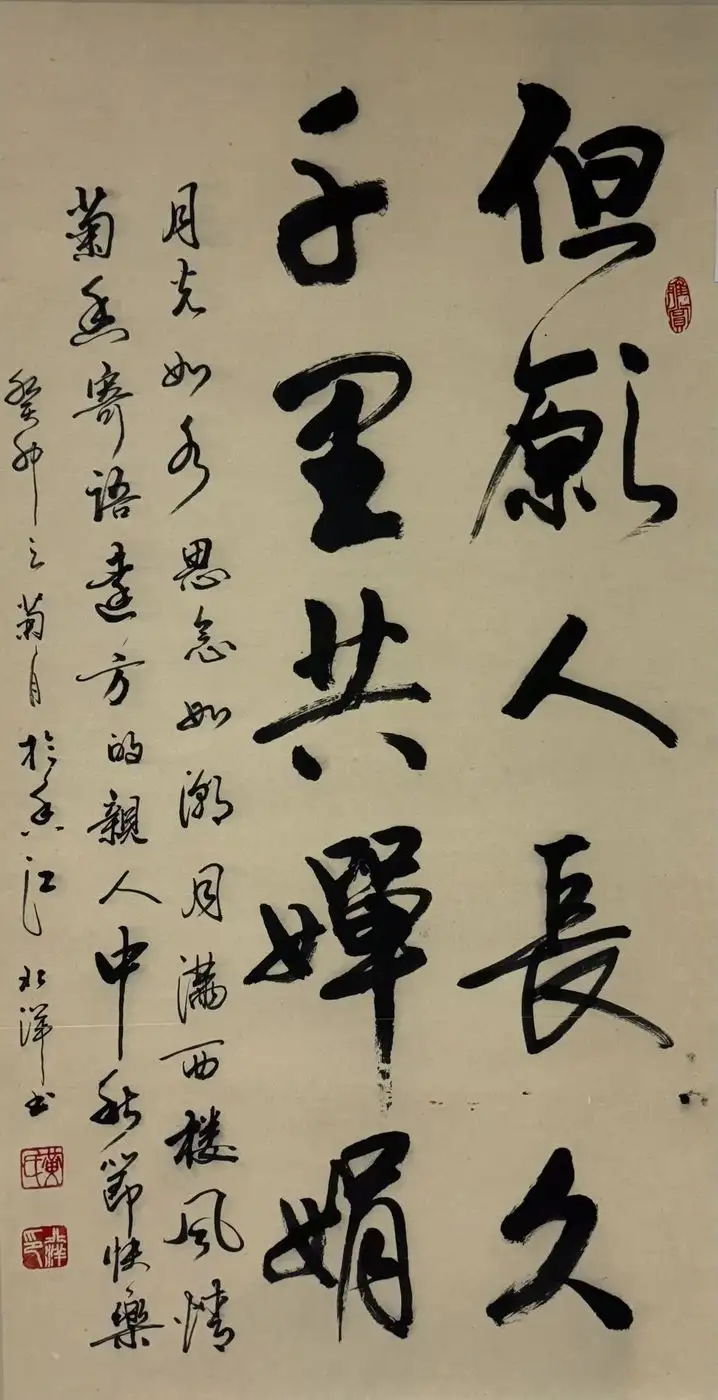 但願人長久
千里共嬋娟
月光如水思念如潮月滿西楼風情
菊香寄語遠方的親人中秋節快樂
癸卯之菊月於香江北洋书